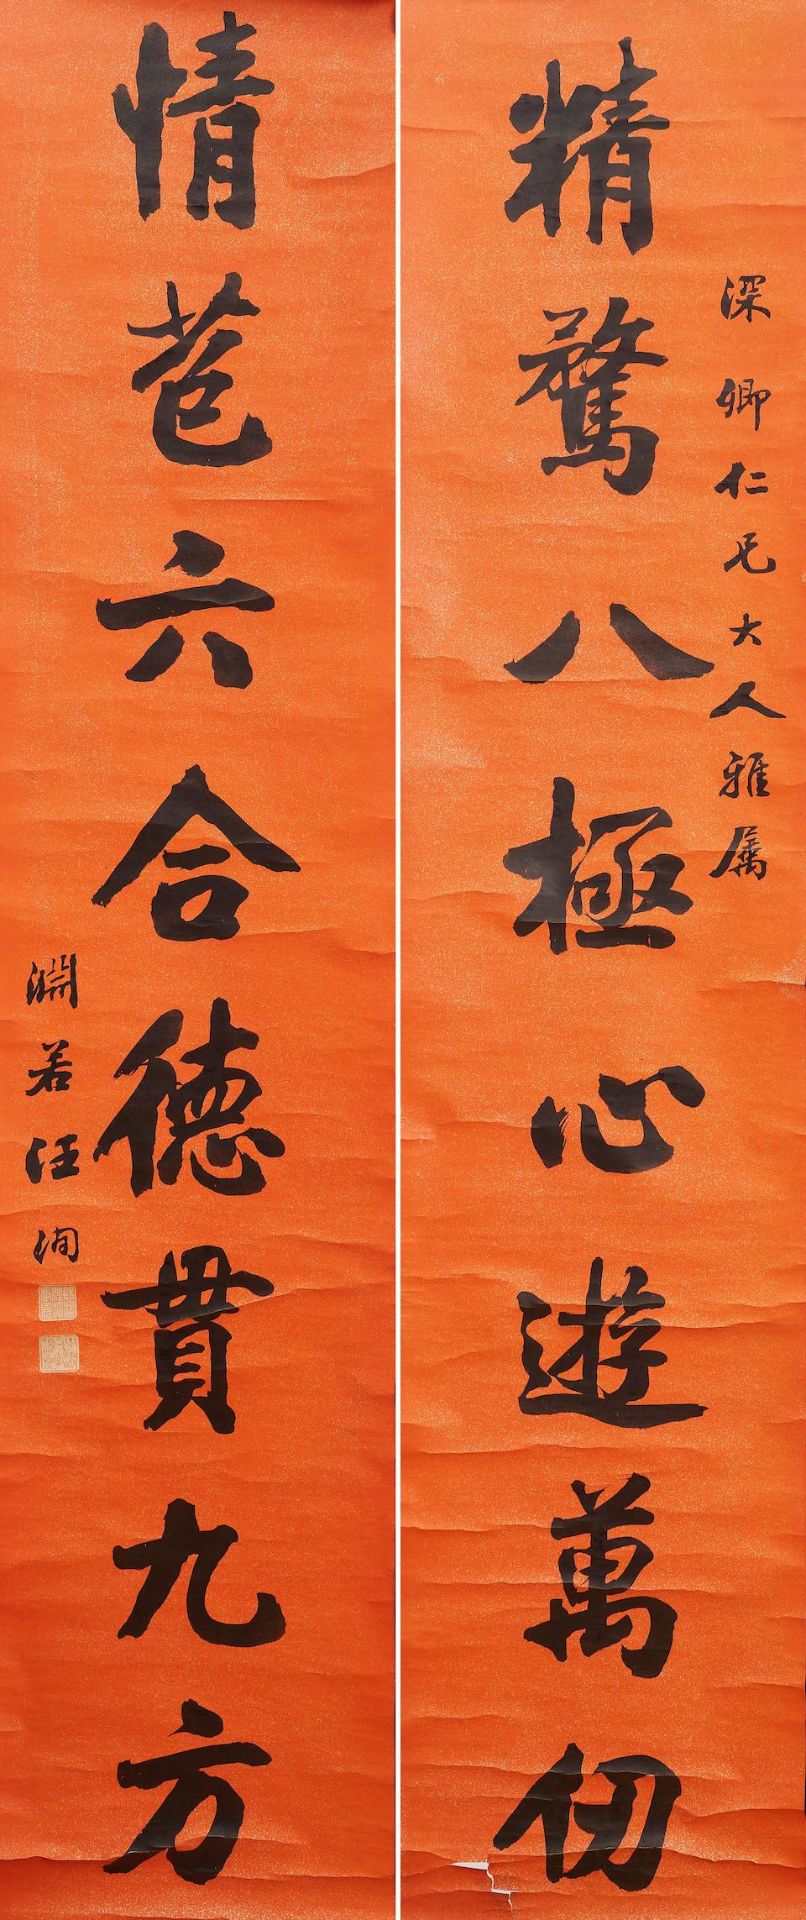 深卿仁兄大人雅属
精驁八極心遊萬仞
情苞六合德貫九方
淵若汪洵